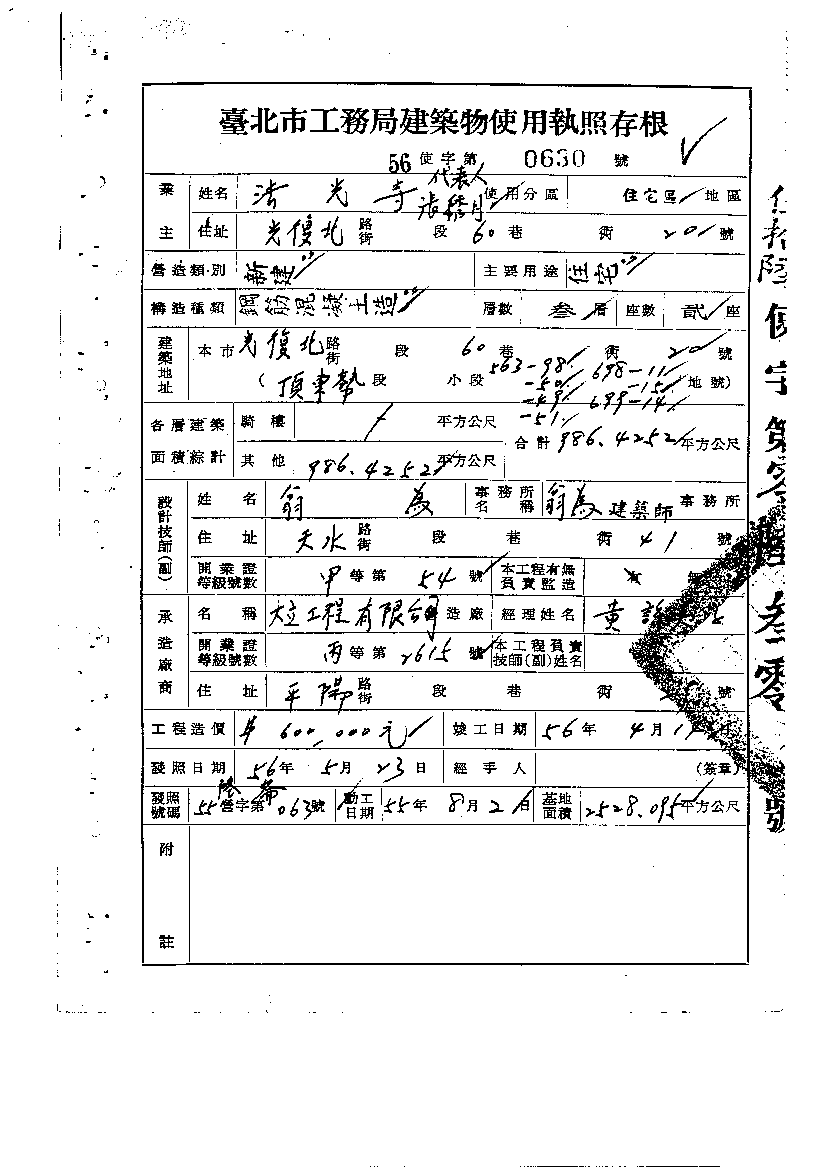 臺北市工務局建築物使用執照存根
56 使字第 0630 號
業主 姓名 法光寺 代表人 使用分區 住宅區 地區
住址 光復北路街 段 60巷 街 20 號
營造類別 新建 主要用途 住宅
構造種類 鋼筋混凝土造 層數 叁層 座數 貳座
建築地址 本市光復北路街 段 60巷 街 20 號
(頂東勢段 小段 563-98 698-11 地號)
-50 -15
-49 699-14
-51
各層建築面積綜計 騎樓 平方公尺 合計 986.4252 平方公尺
其他 986.4252 平方公尺
設計技師(副) 姓名 翁為 事務所名稱 翁為建築師事務所
住址 天水路街 段 巷 街 41 號
開業證等級號數 甲等第 54 號 本工程有無負責監造 有
承造廠商 名稱 大立工程有限公司造廠 經理姓名 黃
開業證等級號數 丙等第 2615 號 本工程負責技師(副)姓名
住址 平陽路街 段 巷 街 號
工程造價 $600,000元 竣工日期 56年 4月
發照日期 56年 5月 23日 經手人 (簽章)
發照號碼 55營字第063號 動工日期 55年 8月 2日 基地面積 2528.095平方公尺
附註
使字第零陸叁零號